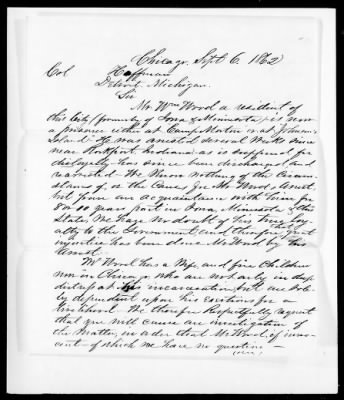 Chicago, Sept 6, 1862
Col Hoffman
Detroit, Michigan.
Sir
Mr. Wm Wood a resident of
this City (formerly of Iowa & Minnesota) is now
a prisoner either at Camp Morton or at Johnson's
Island - He was arrested several weeks since
near Rockport, Indiana, as is supposed for
disloyalty has since been discharged and
rearrested - We know nothing of the Circum
stances of, or the Cause for Mr. Woods Arrest,
but from our acquaintance with him for
8 or 10 years past in Iowa, Minnesota & this
State, We have no doubt of his true loy
alty to the Government and therefore that great
injustice has been done Mr Wood by his
Arrest.
Mr Wood has a Wife and five Children
now in Chicago who are not only in deep
distress at his incarceration, but are sole
ly dependent upon his exertions for a
livelihood. We therefore Respectfully request
that you will cause an investigation of
the Matter, in order that Mr Wood, if inno
cent - of which we have no question -